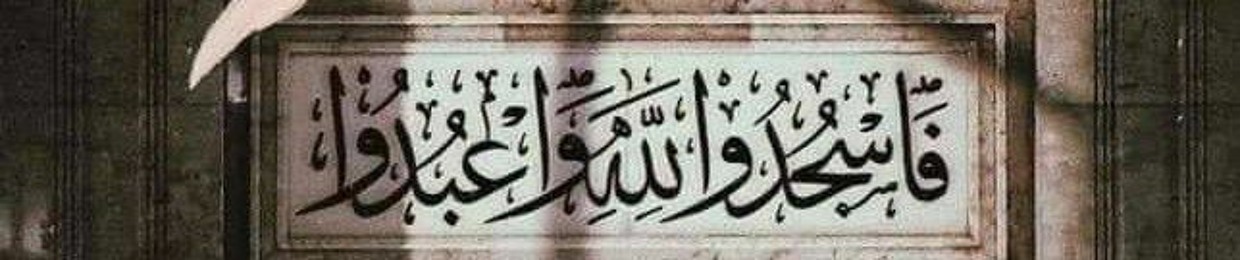 فَاسْجُدُوا لِلَّهِ وَاعْبُدُوا